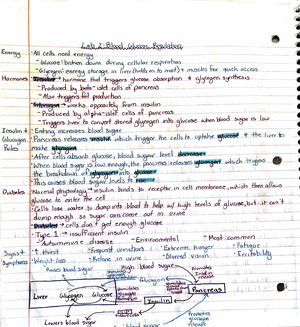 Lab 2: Blood Glucose Regulation
Energy - All cells need energy
- Glucose: broken down during cellular respiration
- Glycogen: energy storage in liver (holds on to most) + muscles for quick access
Hormones - Insulin - hormone that triggers glucose absorption & glycogen synthesis
- Produced by beta-islet cells of pancreas
- Also triggers fat production
- Glucagon → works oppositely from insulin
- Produced by alpha-islet cells of pancreas
- Triggers liver to convert stored glycogen into glucose when blood sugar is low
Insulin & - Eating increases blood sugar
Glucagon - Pancreas releases insulin which trigger the cells to uptake glucose & the liver to
Roles make glycogen
- After cells absorb glucose, blood sugar level decreases
- When blood sugar is low enough, the pancreas releases glucagon which triggers
the breakdown of glycogen into glucose
- This causes blood sugar levels to
Diabetes - Normal physiology → insulin binds to receptor in cell membrane, which then allows
glucose to enter the cell
- Cells lose water to dump into blood to help w/ high levels of glucose, but it can't
dump enough so sugar can come out in urine
- Diabetes → cells don't get enough glucose
- Type 1 → insufficient insulin
- Autoimmune disease - Environmental - Most common
Signs + - ↑ thirst - Frequent urination - Extreme hunger - Fatigue
Symptoms - Weight loss - Ketone in urine - Blurred vision - Irritability
Raises blood sugar High blood sugar Promotes insulin release
Liver Glycogen Glucose Pancreas
Insulin
Lowers blood sugar blood sugar Promotes glucagon release